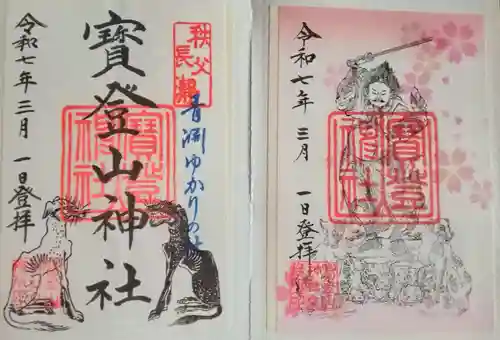 秩父
長瀞
青淵ゆかりの社
寶登山神社
令和七年三月一日登拝
寶登山神社
令和七年三月一日登拝
寶登山神社